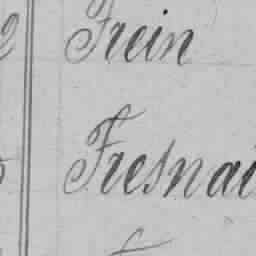 2 Frein
Fresnai